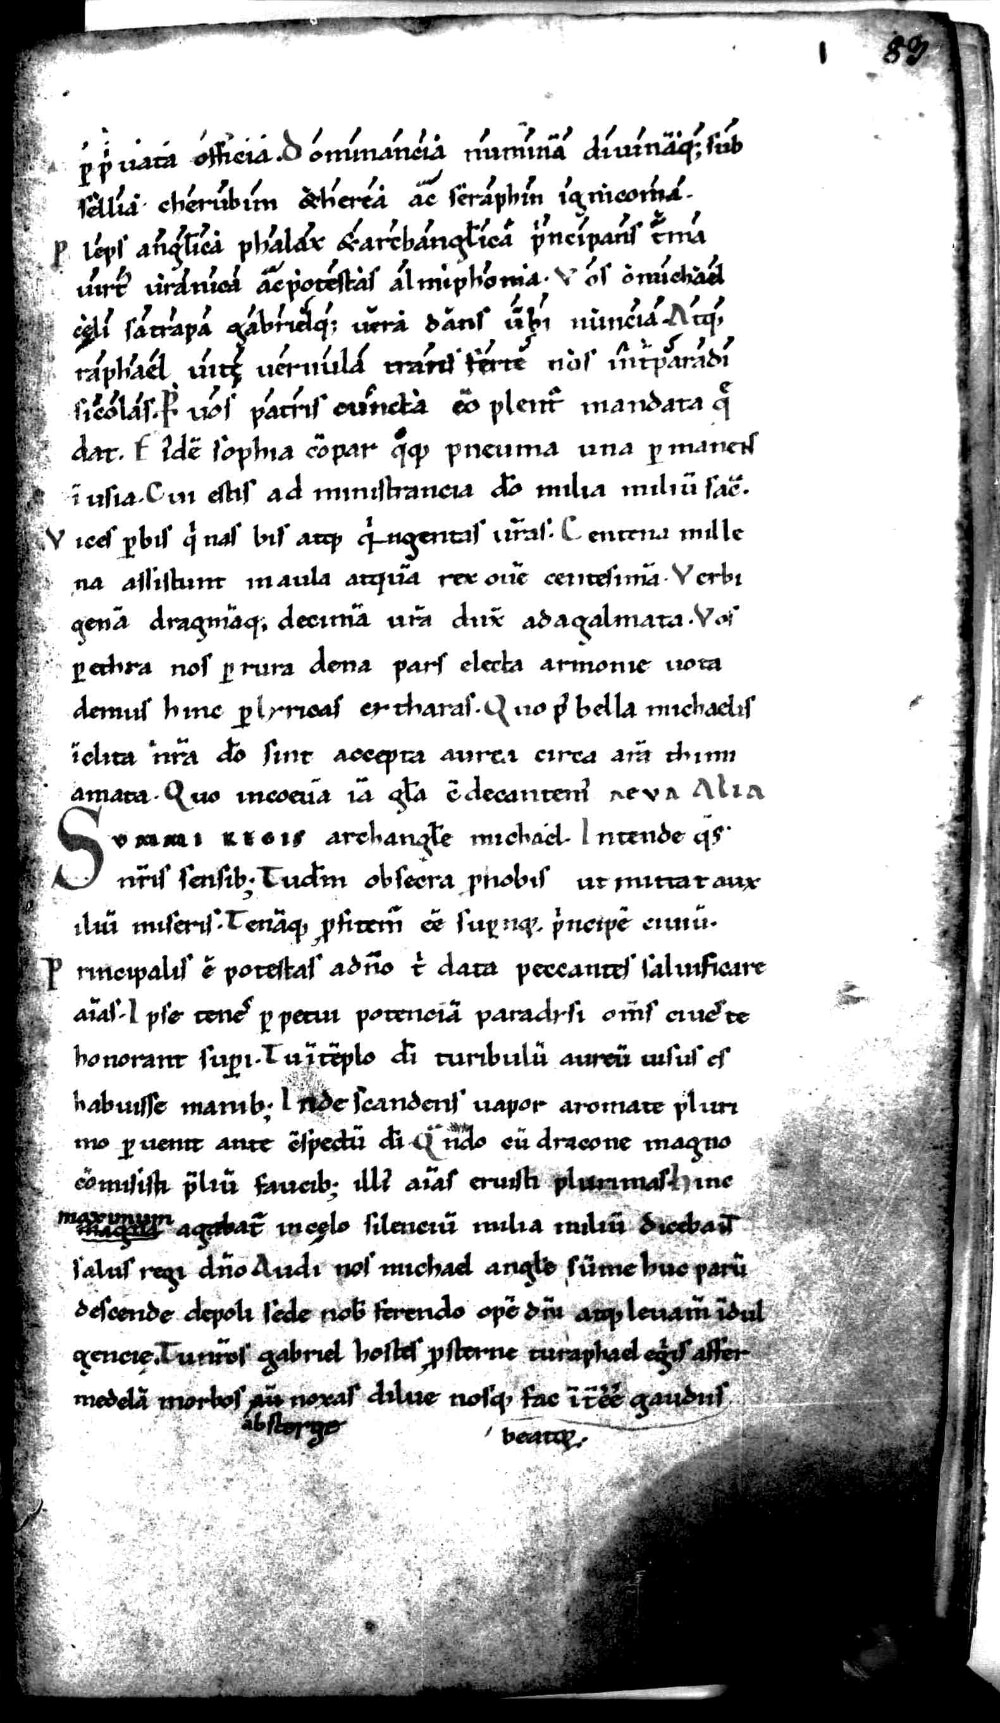 1 89
ꝑ pͥuata officia. Dominancia numina᷃ diuinaq᷃; sub
sellia. cherubim &hereá ac᷃ seraphin ignicoma.
Pleps angl̄ica phalax &archangl̄ica pͥncipans t᷃ma
uirt᷃ uranica ac᷃ potestas almiphonia. Vos o michael
cęli satrapa gabrielq; uera dans u᷃bi nuncia. Atq,
raphael uitę uernula transferte nos int᷃ paradi
sicolas. Pͬ uos patris cuncta co᷃plent᷃ mandata q᷃
dat. Eide᷃ sophia co᷃par q᷃q pneuma una ꝑmanens
ī usia. Cui estis administrancia dō milia miliū sac᷃.
Vices ꝑbis qͥnas bis atq qͥngentas ur̄as. Centena mille
na assistunt in aula atquā rex ouē centesimā. Verbi
genā dragmāq; decimā ur̄a dux᷃ ad agalmata. Vos
ꝑ ethra nos ꝑ rura dena pars electa armonie uota
demus hinc ꝑ lyricas cytharas. Quo p᷃ bella michaelis
īclita nr̄a dō sint accepta aurea circa arā thimi
amata. Quo in coeua iā gl̄a c᷃ decantem᷃ aeva ALIA
SVMMI REGIS archangl̄e michael. Intende q᷃s
nr̄is sensib; Tu d᷃m obsecra ꝓ nobis ut mittat aux
iliū miseris. Tenāq, ꝓfitem᷃ e᷃e suꝑnoꝝ, pͥncipē ciuiū.
Principalis ē potestas a dn̄o tͥ data peccantes saluificare
aīas. Ipse tenes ꝑpetui potenciā paradysi om̄s ciues te
honorant suꝑi. Tu ī tēplo dī turibulū aureū uisus es
habuisse manib; Inde scandens uapor aromate pluri
mo ꝑuenit ante c᷃spectū dī Q᷃ndo cū dracone magno
cōmisisti p᷃liū faucib; illi᷃ aīas eruisti plurimas hinc
maxunum
magnū agebat᷃ in cęlo silenciū milia miliū dicebant᷃
salus regi dn̄o Audi nos michael angl̄e sūme huc parū
descende de poli sede nob᷃ ferendo opē dn̄i atq leuam᷃ īdul
gencię. Tu nr̄os gabriel hostes ꝓsterne tu raphael eg᷃is affer
medelā morbos aū noxas dilue nosq, fac īt᷃ee᷃ gaudiis
absterge beatoꝝ.